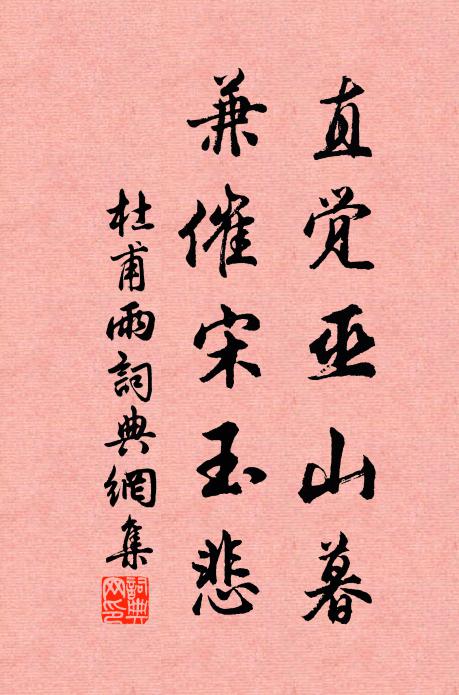 直覺巫山暮
兼催宋玉悲
杜甫雨詞典網集
詞典
网印